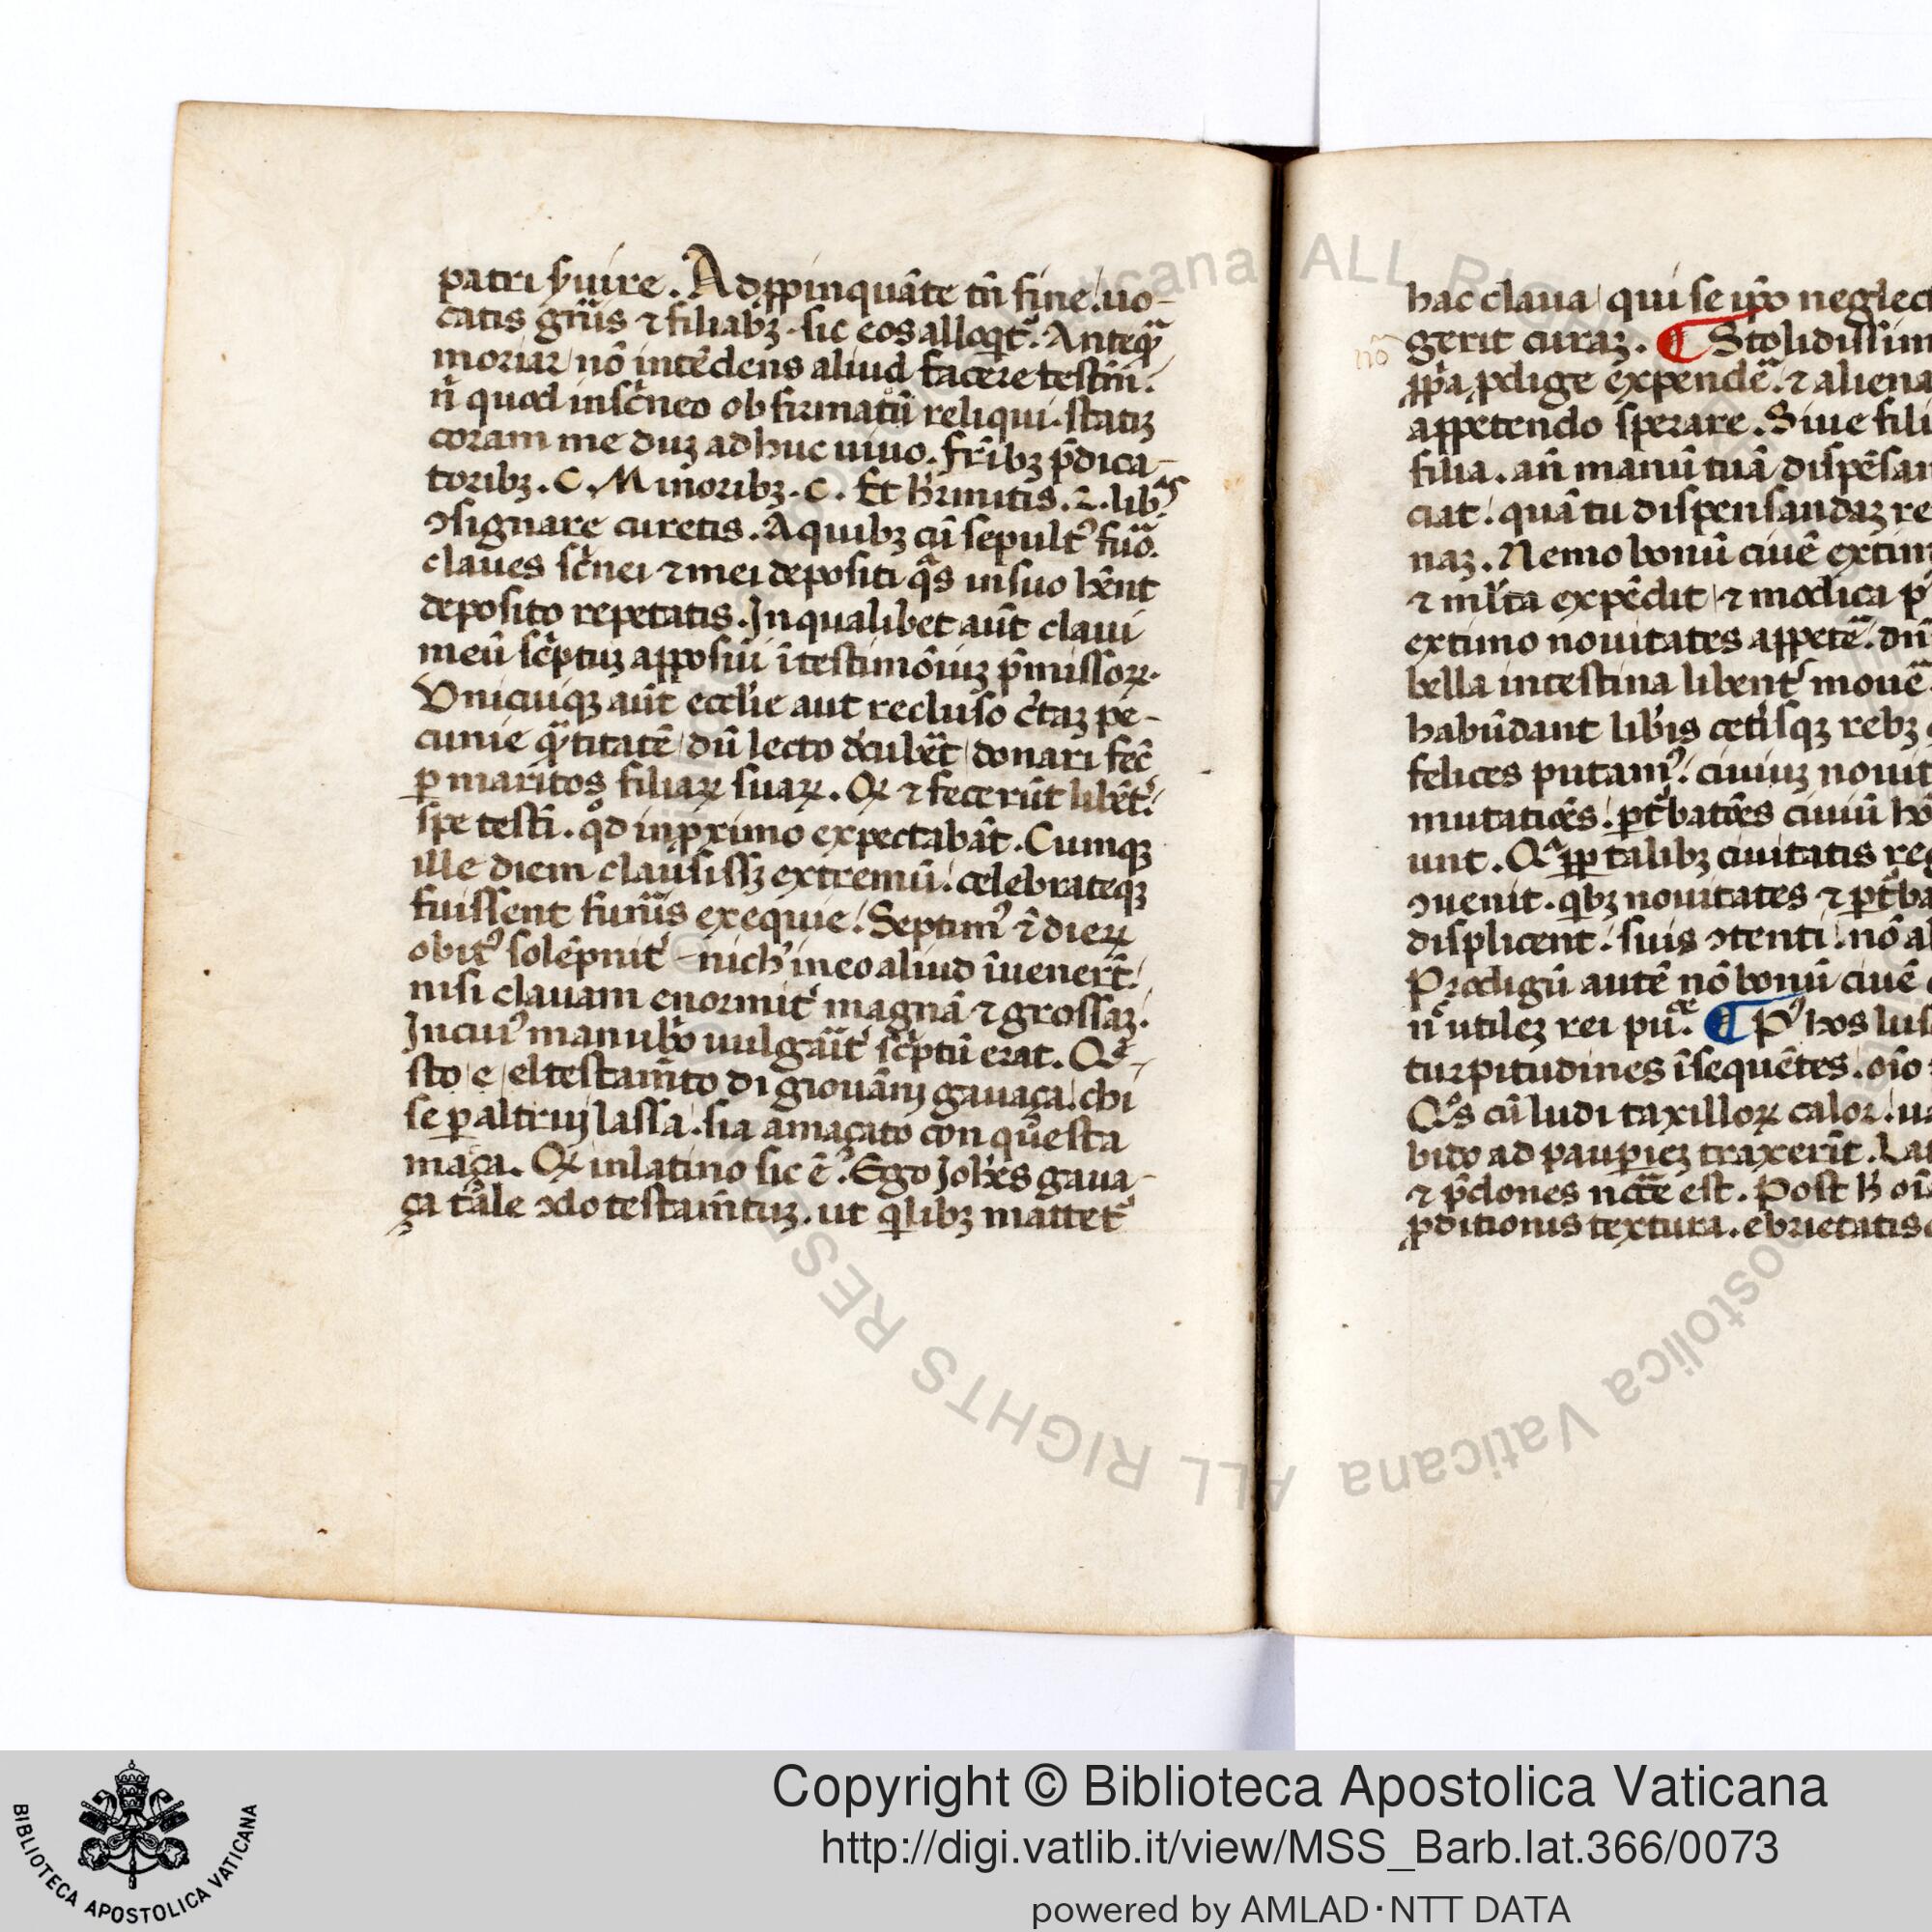 patri ẜuire. Adꝓpinquãte tñ fine! uo-
catis gñis ⁊ filiabꝫ. sic eos alloqͥt. Anteqͣ
moriar nõ intẽdens aliud facere testm̃.
ñ quod in scͥneo obfirmatũ reliqui. statiꝫ
coram me duꝫ adhuc uiuo. fr̃ibꝫ p̃dica-
toribꝫ. C. Minoribꝫ. C. Et h'imitis. L. libͣs
ꝯsignare curetis. A quibꝫ cũ sepult᾿ fuõ.
claues scͥnei ⁊ mei depositi qͣs in suo hẽnt
deposito repetatis. In qualibet aũt claui
meũ scͥptuꝫ apposui ĩ testimõiuꝫ p̃missoꝝ.
Vnicuiqꝫ aũt eccl'ie aut recluso c'taꝫ pe-
cunie qͣtitatẽ dũ lecto dcubẽt donari fec̃
ꝑ maritos filiaꝝ suaꝝ. Qꝫ ⁊ fecerũt libẽt᾿!
spe testi. qͦd in ꝓximo expectabãt. Cumqꝫ
ille diem clausissꝫ extremũ! celebrateqꝫ
fuissent fun'is exequie! Septim᾿ ĩ dieꝝ
obit᾿ solẽpnit᾿ nich' in eo aliud ĩuener̃t!
nisi clauam enormit᾿ magnã ⁊ grossaꝫ.
In cui᾿ manubͥo uulgarit᾿ scͥptũ erat. Qͤ-
sto e el testam̃to di giouãnj gauaça. chi
se ꝑ altruj lassa. sia amaçato con qͧesta
maça. Qꝫ in latino sic ẽ! Ego Joh'es gaua-
ça tale ꝯdo testam̃tuꝫ. ut qͥlibꝫ mattet᾿
hac claua qui se ip̃o neglec
gerit curaꝫ. ¶ Stolidissim
nõ
ꝓp̃a ꝓdige expendẽ. ⁊ aliena
appetendo sperare. Siue fili
filia. añ manũ tuã dispẽsan
ciat! quã tu dispensandaꝫ re
naꝫ. Nemo bonũ ciuẽ extim
⁊ ml'ta expẽdit ⁊ modica p
extimo nouitates appetẽ. dñ
bella intestina libent᾿ mouẽ
habũdant lib'is cet'isqꝫ rebꝫ
felices putam᾿! ciuiuꝫ nouit
mutatiões! ꝑt'batões ciuiũ ho
unt. Qͣꝓpͭ talibꝫ ciuitatis reg
ꝯuenit. qͥbꝫ nouitates ⁊ ꝑt'ba
displicent! suis ꝯtenti. nõ al
Prodigũ autẽ nõ bonũ ciuẽ
nͨ utileꝫ rei puͨᵉ. ¶ P᾿ hos lus
turpitudines ĩsequẽtes. oĩo
Qͦs cũ ludi taxilloꝝ calor. ua
bido ad pauꝑieꝫ traxerit. Lat
⁊ p̃dones nc̃ẽ est. Post h' oĩa
ꝓditionis textura. ebrietatis
Copyright © Biblioteca Apostolica Vaticana
http://digi.vatlib.it/view/MSS_Barb.lat.366/0073
powered by AMLAD·NTT DATA
BIBLIOTECA APOSTOLICA VATICANA